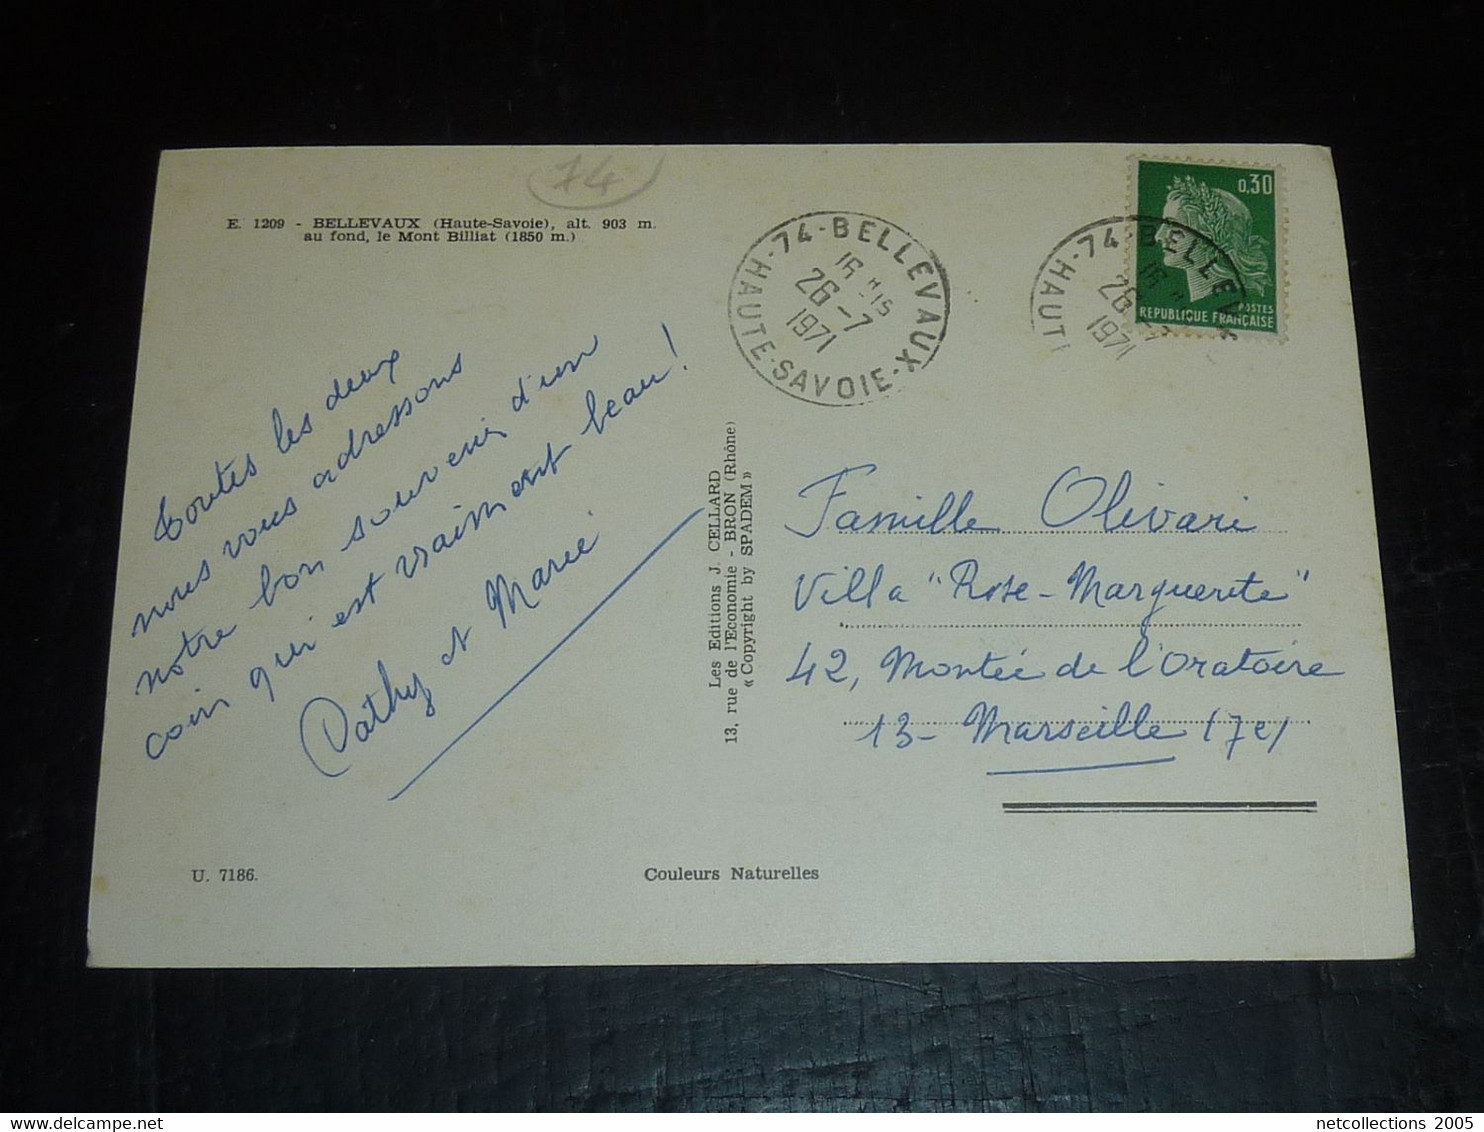 74
E. 1209 - BELLEVAUX (Haute-Savoie), alt. 903 m.
au fond, le Mont Billiat (1850 m.)
Toutes les deux
nous vous adressons
notre bon souvenir d'un
coin qui est vraiment beau!
Cathy et Marie
U. 7186.
Couleurs Naturelles
Les Editions J. CELLARD
13, rue de l'Economie - BRON (Rhône)
« Copyright by SPADEM »
74-BELLEVAUX
16 H 15
26-7
1971
HAUTE-SAVOIE-X
0,30
POSTES
REPUBLIQUE FRANÇAISE
74-BELLEV
16 H
26-7
1971
HAUT
Famille Olivari
Villa "Rose-Marguerite"
42, Montée de l'Oratoire
13- Marseille (7e)
netcollections 2005